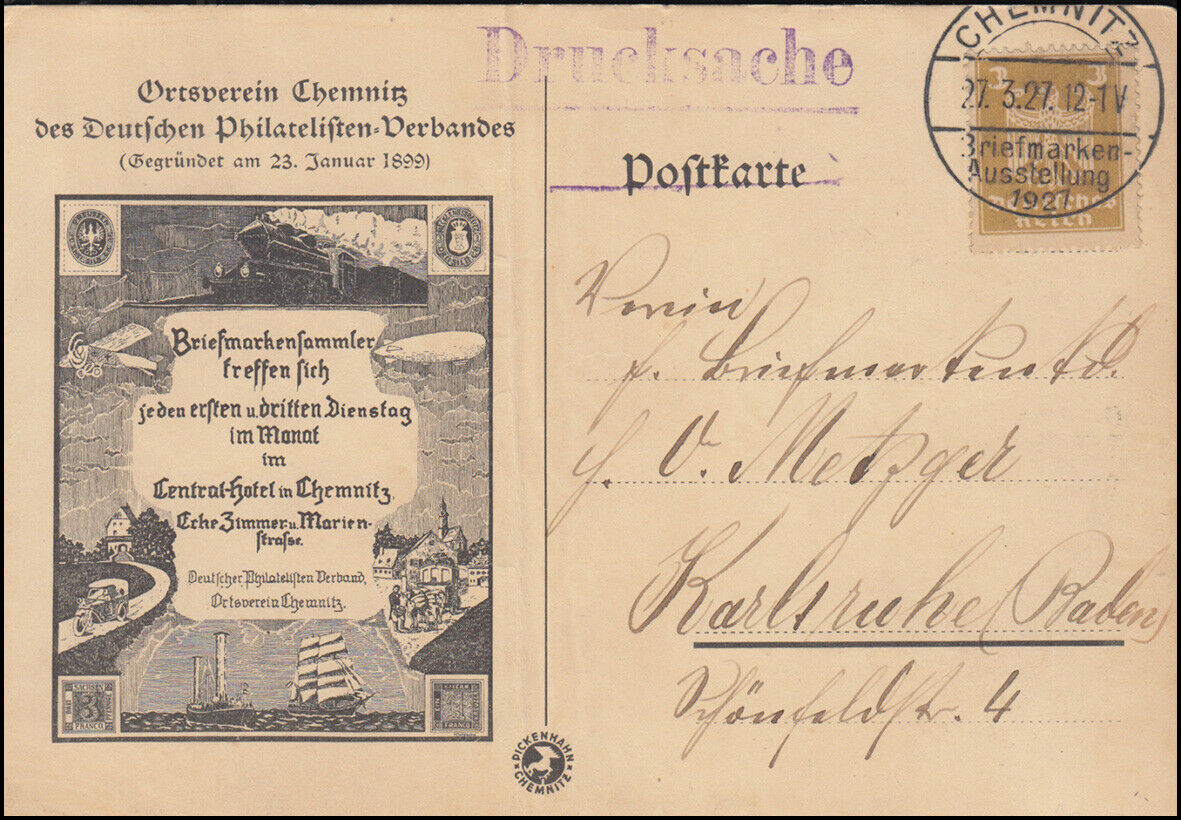 Drucksache
CHEMNITZ
27. 3. 27. 12-1 V
Briefmarken-
Ausstellung
1927
3 3
DEUTSCHES
REICH
Ortsverein Chemnitz
des Deutschen Philatelisten-Verbandes
(Gegründet am 23. Januar 1899)
Briefmarkensammler
treffen sich
jeden ersten u. dritten Dienstag
im Monat
im
Central-Hotel in Chemnitz,
Ecke Zimmer- u. Marien-
strasse.
Deutscher Philatelisten Verband,
Ortsverein Chemnitz.
SACHSEN
3
FRANCO
BAYERN
FRANCO
DICKENHAHN
CHEMNITZ
Postkarte
Verein
f. Briefmarkenkd.
O. Metzger
Karlsruhe (Baden)
Schönfeldstr. 4